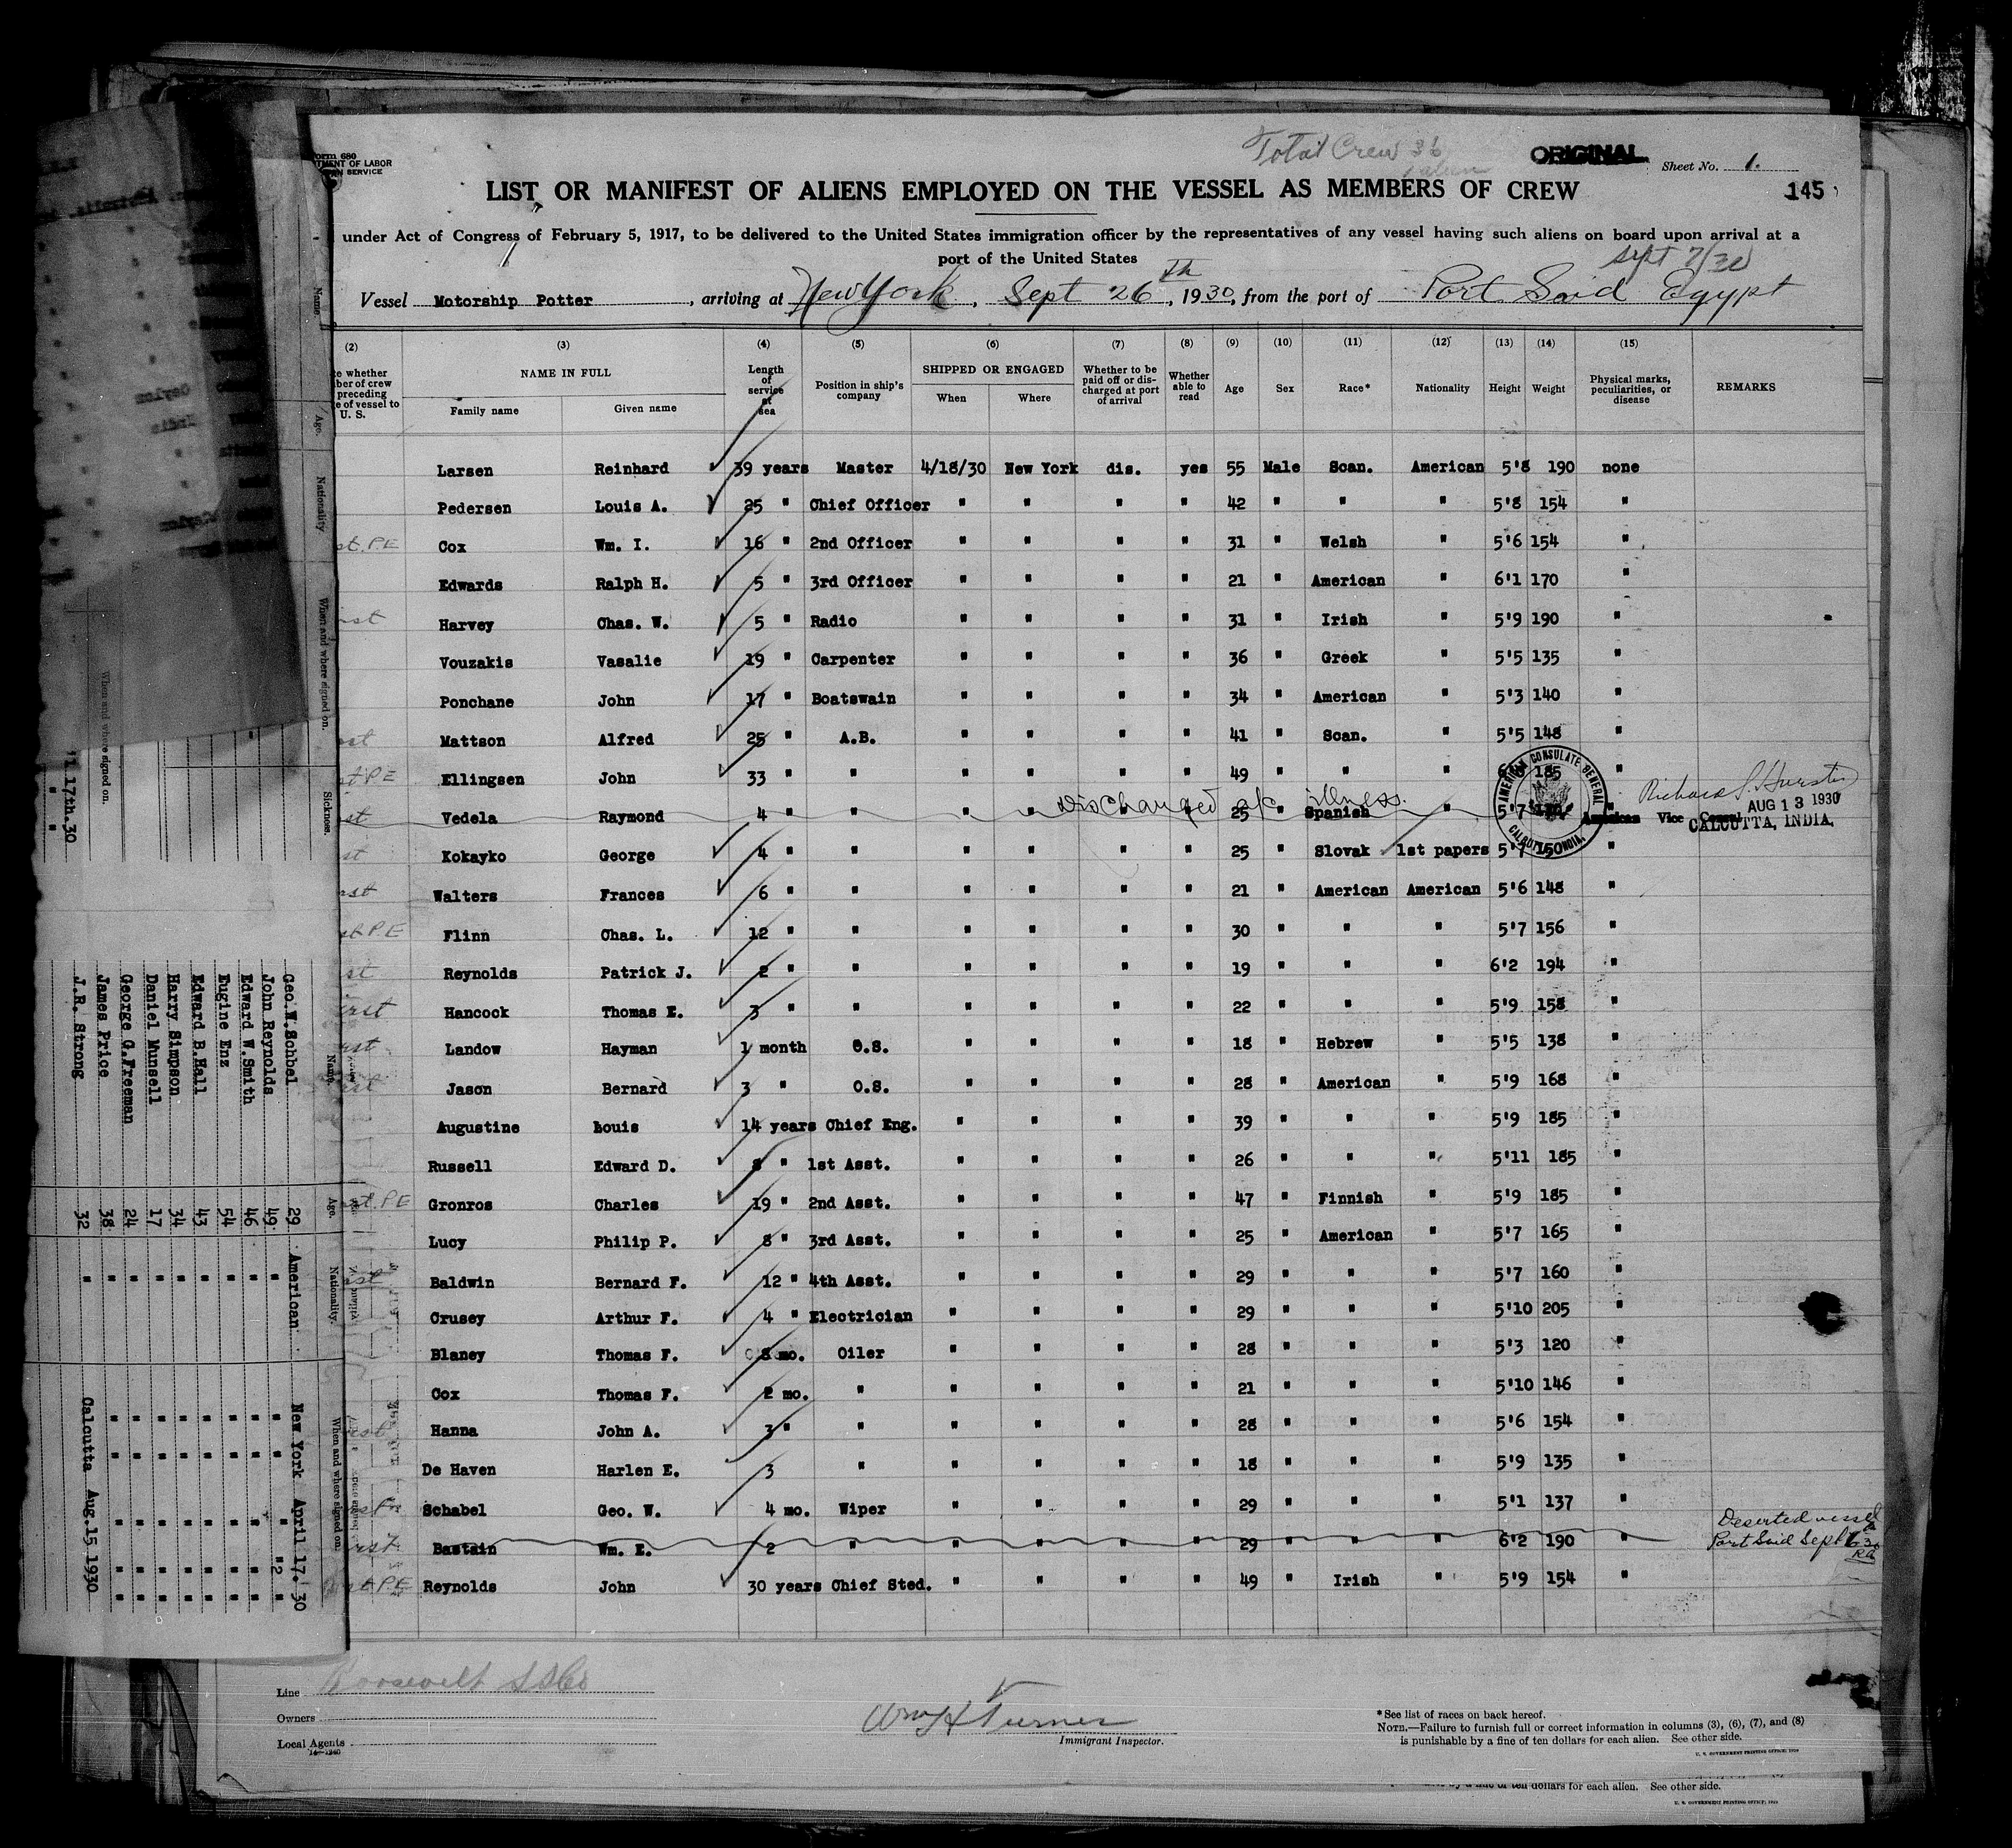 Form 680
ORIGINAL
Total Crew 36
Sheet No. 1.
LIST OR MANIFEST OF ALIENS EMPLOYED ON THE VESSEL AS MEMBERS OF CREW
145
under Act of Congress of February 5, 1917, to be delivered to the United States immigration officer by the representatives of any vessel having such aliens on board upon arrival at a
port of the United States
Sept 7/30
Vessel Motorship Potter, arriving at New York, Sept 26th, 1930, from the port of Port Said Egypt
(2) (3) (4) (5) (6) (7) (8) (9) (10) (11) (12) (13) (14) (15)
NAME IN FULL
Family name Given name
Length of service at sea
Position in ship's company
SHIPPED OR ENGAGED
When Where
Whether to be paid off or discharged at port of arrival
Whether able to read
Age Sex Race* Nationality Height Weight
Physical marks, peculiarities, or disease
REMARKS
Larsen Reinhard 39 years Master 4/18/30 New York dis. yes 55 Male Scan. American 5'8 190 none
Pedersen Louis A. 25 " Chief Officer " " " " 42 " " " 5'8 154 "
st. P.E Cox Wm. I. 16 " 2nd Officer " " " " 31 " Welsh " 5'6 154 "
Edwards Ralph H. 5 " 3rd Officer " " " " 21 " American " 6'1 170 "
Harvey Chas. W. 5 " Radio " " " " 31 " Irish " 5'9 190 "
Vouzakis Vasalie 19 " Carpenter " " " " 36 " Greek " 5'5 135 "
Ponchane John 17 " Boatswain " " " " 34 " American " 5'3 140 "
Mattson Alfred 25 " A.B. " " " " 41 " Scan. " 5'5 148 "
Ellingsen John 33 " " " " " " 49 " " " 185 "
Discharged a/c illness.
Vedela Raymond 4 " " " " " " 25 " Spanish " 5'7 "
AMERICAN CONSULATE GENERAL
CALCUTTA, INDIA.
AUG 13 1930
American Vice Consul
CALCUTTA, INDIA.
Kokayko George 4 " " " " " " 25 " Slovak 1st papers 5'7 150 "
Walters Frances 6 " " " " " " 21 " American American 5'6 148 "
st P.E Flinn Chas. L. 12 " " " " " " 30 " " " 5'7 156 "
Reynolds Patrick J. 2 " " " " " " 19 " " " 6'2 194 "
Hancock Thomas E. 3 " " " " " " 22 " " " 5'9 158 "
Landow Hayman 1 month O.S. " " " " 18 " Hebrew " 5'5 138 "
Jason Bernard 3 " O.S. " " " " 28 " American " 5'9 168 "
Augustine Louis 14 years Chief Eng. " " " " 39 " " " 5'9 185 "
Russell Edward D. 8 " 1st Asst. " " " " 26 " " " 5'11 185 "
st. P.E Gronros Charles 19 " 2nd Asst. " " " " 47 " Finnish " 5'9 185 "
Lucy Philip P. 8 " 3rd Asst. " " " " 25 " American " 5'7 165 "
Baldwin Bernard F. 12 " 4th Asst. " " " " 29 " " " 5'7 160 "
Crusey Arthur F. 4 " Electrician " " " " 29 " " " 5'10 205 "
Blaney Thomas F. 8 mo. Oiler " " " " 28 " " " 5'3 120 "
Cox Thomas F. 2 mo. " " " " " 21 " " " 5'10 146 "
Hanna John A. 3 " " " " " " 28 " " " 5'6 154 "
De Haven Harlen E. 3 " " " " " 18 " " " 5'9 135 "
Schabel Geo. W. 4 mo. Wiper " " " " 29 " " " 5'1 137 "
Bastain Wm. E. 2 " " " " " 29 " " " 6'2 190 "
Deserted vessel
Port Said Sept
Reynolds John 30 years Chief Sted. " " " " 49 " Irish " 5'9 154 "
Line Roosevelt SS Co
Owners
Local Agents
14—1240
Wm H Turner
Immigrant Inspector.
*See list of races on back hereof.
NOTE.—Failure to furnish full or correct information in columns (3), (6), (7), and (8)
is punishable by a fine of ten dollars for each alien. See other side.
of ten dollars for each alien. See other side.
Name. Age. Nationality. When and where signed on.
Geo.W.Schbel 29 American New York April 17. 30
John Reynolds 49 " " " "
Edward W.Smith 46 " " " "
Eugine Enz 54 " " " "
Edward B.Hall 43 " " " "
Harry Simpson 34 " " " "
Daniel Munsell 17 " " " "
George G.Freeman 24 " " " "
James Price 38 " " " "
J.R. Strong 32 " Calcutta Aug.15 1930
Name Age. Nationality When and where signed on. Sickness.
17th.30
When and where signed on.
Ceylon
India